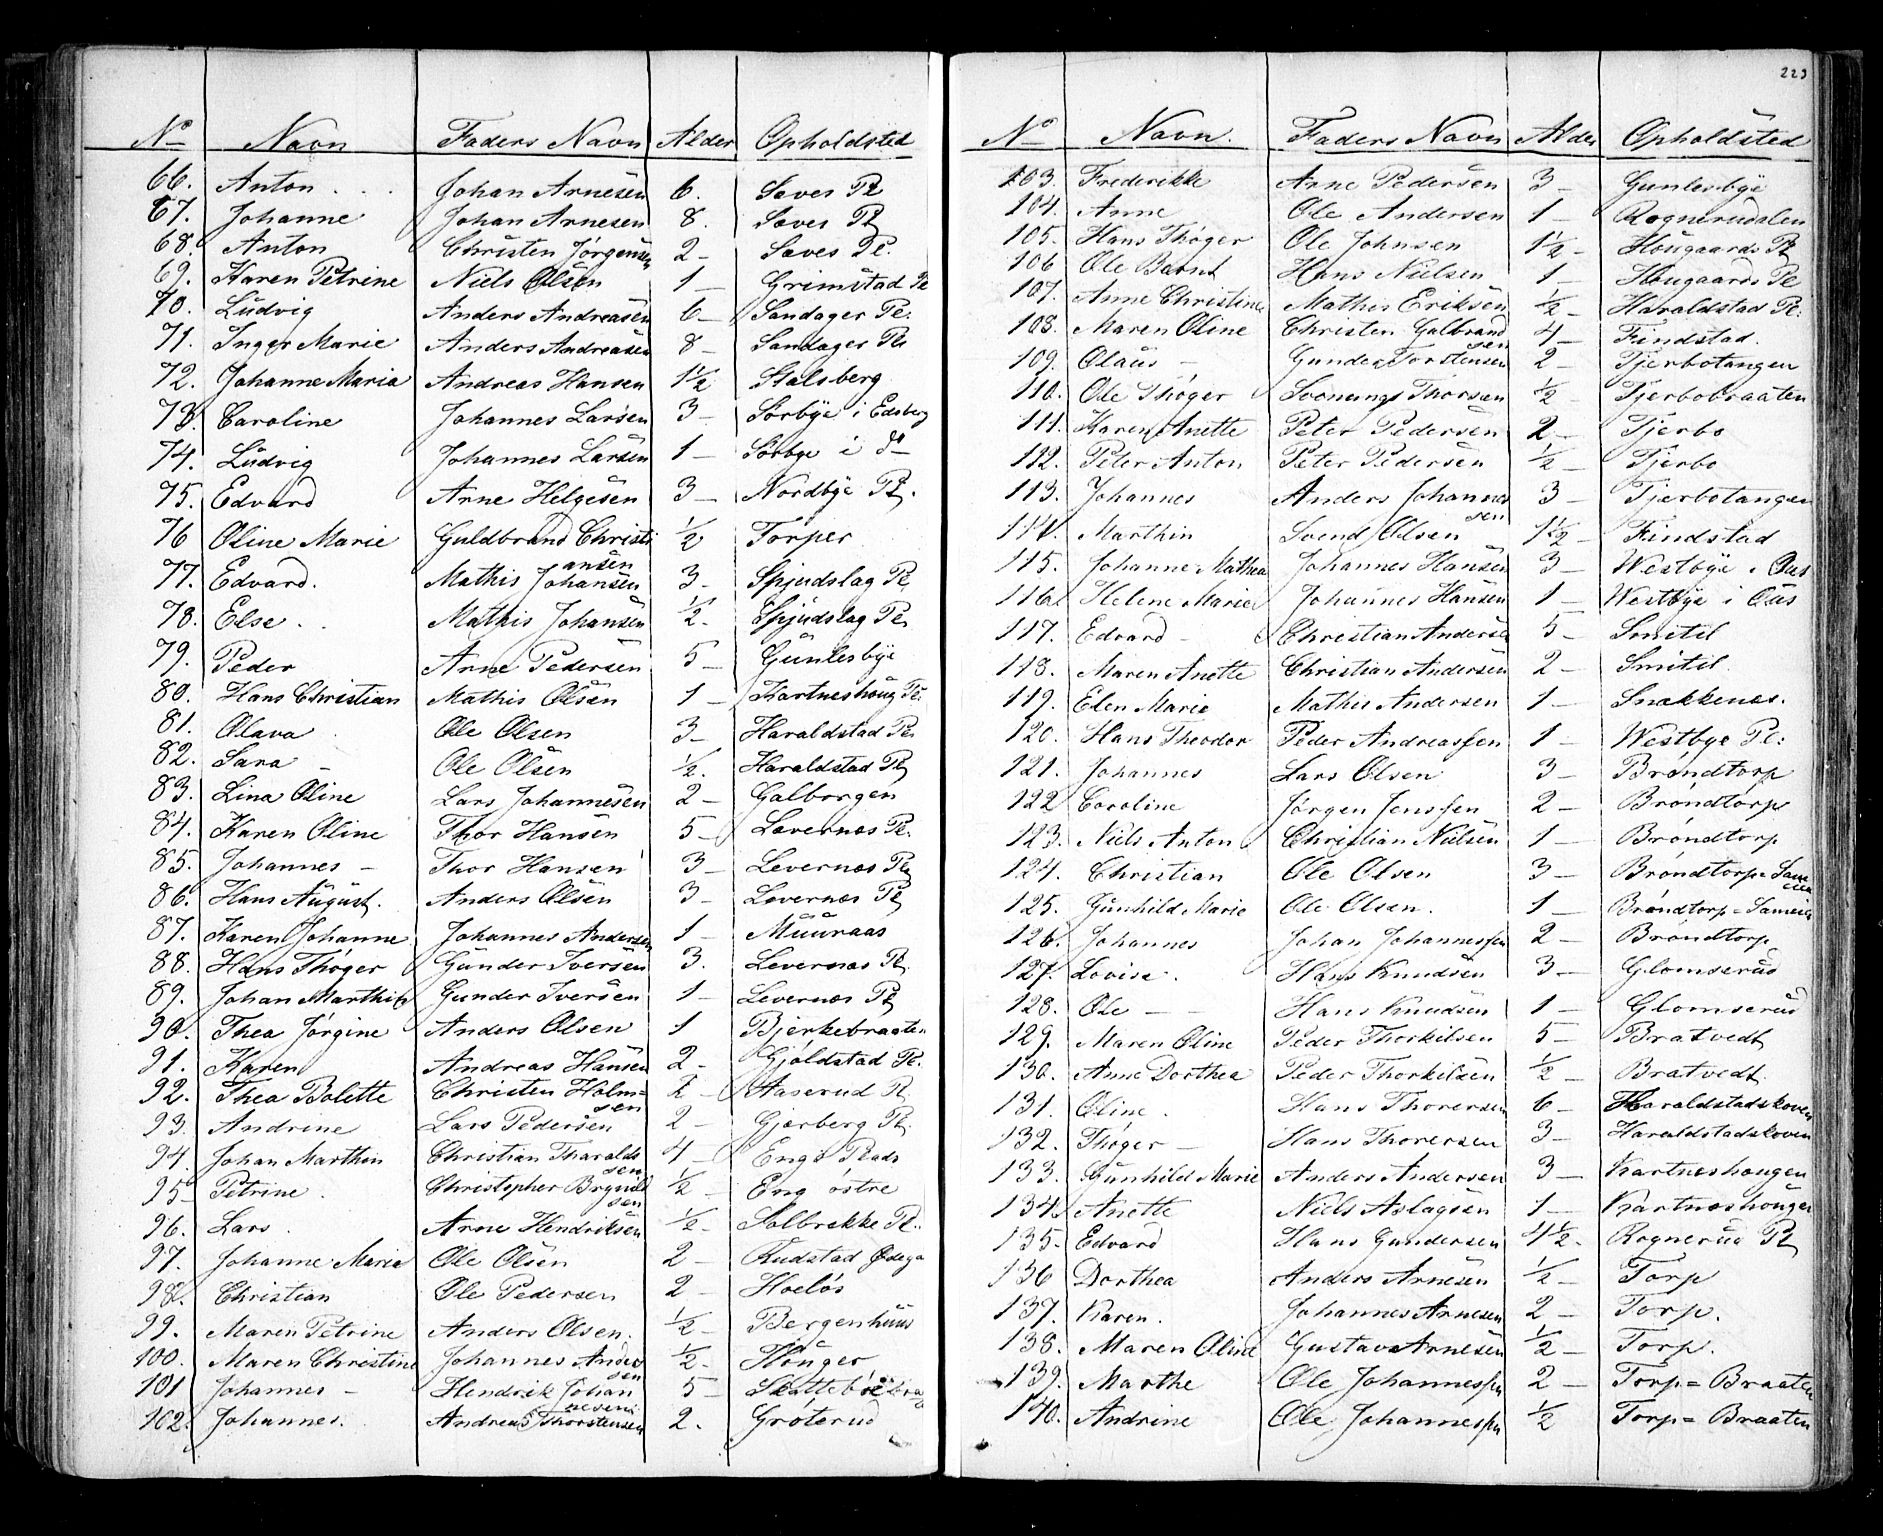 No Navn Faders Navn Alder Opholdsted
66. Anton Johan Arnesen 6. Saves Pl
67. Johanne Johan Arnesen 8. Saves Pl
68. Anton Christen Jørgensen 2 - Saves Pl.
69. Karen Petrine Niels Olsen 1 - Grimstad Pl
70. Ludvig Anders Andreasen 6 - Sandager Pl:
71. Inger Marie Anders Andreasen 8 - Sandager Pl:
72. Johanne Maria Andreas Hansen 1½ Stalsberg
73. Caroline Johannes Larsen 3 - Sørbye i Edsberg
74. Ludvig Johannes Larsen 1 - Sørbye i do
75. Edvard Arne Helgesen 3 - Nordbye Pl.
76 Oline Marie Guldbrand Christi ½ Torper
ansen
77. Edvard. Mathis Johansen 3 - Spjudslag Pl
78. Else Mathis Johansen ½. Spjudslag Pl
79. Peder Arne Pedersen 5 - Gunlesbye
80. Hans Christian Mathis Olsen 1 - Kartneshoug Pl.
81. Olava Ole Olsen 3 - Haraldstad Pl
82. Sara - Ole Olsen ½. Haraldstad Pl
83. Lina Oline Lars Johannesen 2 - Galborgen
84. Karen Oline Thor Hansen 5 - Levernæs Pl.
85. Johannes - Thor Hansen 3 - Levernæs Pl
86. Hans August. Anders Olsen 3 - Levernæs Pl
87. Karen Johanne Johannes Andersen 1 - Muuraas
88. Hans Thøger Gunder Iversen 3. Levernæs Pl.
89. Johan Marthin Gunder Iversen 1 - Levernæs Pl
90. Thea Jørgine Anders Olsen 1 Bjerkebraaten
91. Karen Andreas Hansen 2 - Gjøldstad Pl.
92. Thea Bolette Christen Holm= 2 - Aaserud Pl.
sen
93. Andrine Lars Pedersen 2 - Gjerberg Pl.
94. Johan Marthin Christian Tharalds 4 - Engs Plads
sen
95 Petrine. Christopher Brynild ½ - Eng østre
sen
96. Lars. Arne Hendriksen ½ - Solbrekke Pl.
97. Johanne Marie Ole Olsen 2 - Rudstad Ødega
98. Christian Ole Pedersen 2 - Hoeløs
99. Maren Petrine Anders Olsen. ½ - Bergenhuus
100. Maren Christine Johannes Ander ½ - Hønger
sen
101 Johannes - Hendrik Johan 5 -
nesen
102. Johannes. Andreas Thorstensen 2. Grøterud
223
No Navn. Faders Navn Alder Opholdsted
103. Frederikke Arne Pedersen 3 - Gunlesbye
104. Anne Ole Andersen 1 - Rognerudalen
105. Hans Thøger Ole Johnsen 1½ - Hougaards Pl
106 Ole Bernt Hans Nielsen 1 - Hougaards Pl
107. Anne Christine Mathis Eriksen ½ - Haraldstad Pl.
108. Maren Oline Christen Galbrand 4 - Findstad.
sen
109. Olaus - Gunder Torstensen 2 - Tjerbotangen
110. Ole Thøger Svennungs Thorsen ½ - Tjerbobraaten
111. Karen Anette Peter Pedersen 2 - Tjerbo
112. Peter Anton Peter Pedersen ½ - Tjerbo
113. Johannes Anders Johannes 3 - Tjerbotangen
sen
114. Marthin Svend Olsen 1½ - Findstad
115. Johanne Mathea Johannes Hansen 3 - Westbye i Aas
116. Helene Marie Johannes Hansen 1 - Westbye i Aas
117. Edvard - Christian Anderse 5 - Smitil
118. Maren Anette Christian Andersen 2 - Smitil.
119. Elen Marie Mathis Andersen 1 - Snekkenes.
120. Hans Theodor Peder Andreassen 1 - Westbye Pl:
121. Johannes Lars Olsen 3 - Brøndtorp
122 Caroline Jørgen Jenssen 2 - Brøndtorp
123. Niels Anton Christian Nielsen 1 - Brøndtorp
124. Christian Ole Olsen 3 - Brøndtorp=
125. Gunhild Marie Ole Olsen. 1 - Brøndtorp=
126. Johannes Johan Johannessen 2 - Brøndtorp
127. Lovise. Hans Knudsen 3 - Glomserud
128. Ole - - Hans Knudsen 1 - Glomserud
129. Maren Oline Peder Thorkilsen 5 - Bratvedt
130. Anne Dorthea Peder Thorkilsen ½ - Bratvedt.
131. Oline. Hans Thorersen 6 - Haraldstadskoven
132. Thøger - Hans Thorersen 3 - Haraldstadskoven
133. Gunhild Marie Anders Andersen 3 - Kartneshougen
134. Anette Niels Aslagsen 1 - Kartneshougen
135. Edvard Hans Gundersen 4½. Rognerud Pl
136 Dorthea Anders Arnesen ½ - Torp
137. Karen. Johannes Arnesen 2 - Torp.
138. Maren Oline Gustav Arnesen ½ - Torp.
139. Marthe Ole Johannessen 2 - Torp= Braaten
140. Andrine Ole Johannessen ½ Torp= Braaten